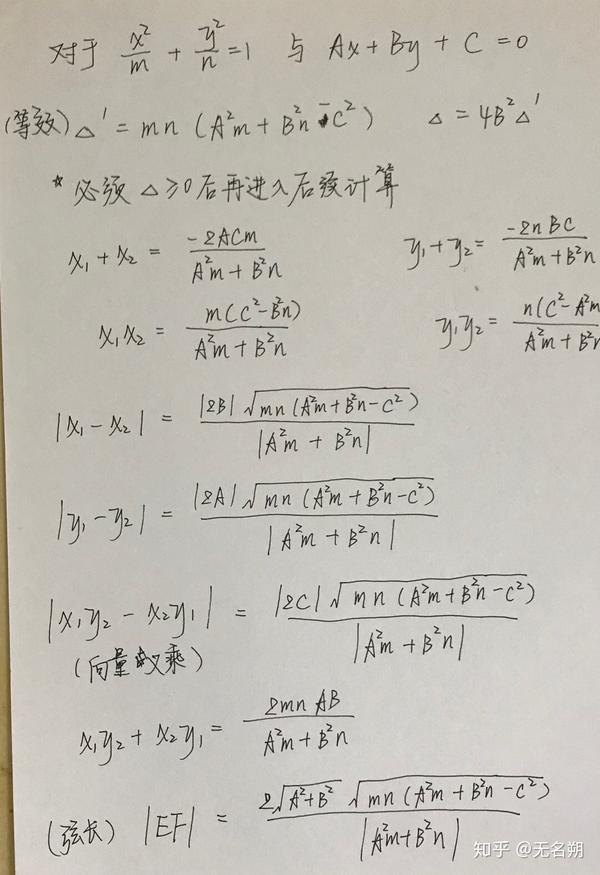 对于 x²/m + y²/n = 1 与 Ax + By + C = 0
(等效) △' = mn (A²m + B²n - C²) △ = 4B²△'
* 必须 △ ≥ 0 后再进入后续计算
x₁ + x₂ = -2ACm / (A²m + B²n) y₁ + y₂ = -2nBC / (A²m + B²n)
x₁x₂ = m(C² - B²n) / (A²m + B²n) y₁y₂ = n(C² - A²m / (A²m + B²n
|x₁ - x₂| = |2B| √(mn (A²m + B²n - C²)) / |A²m + B²n|
|y₁ - y₂| = |2A| √(mn (A²m + B²n - C²)) / |A²m + B²n|
|x₁y₂ - x₂y₁| = |2C| √(mn (A²m + B²n - C²)) / |A²m + B²n|
(向量叉乘)
x₁y₂ + x₂y₁ = 2mnAB / (A²m + B²n)
(弦长) |EF| = 2√(A² + B²) √(mn (A²m + B²n - C²)) / |A²m + B²n|
知乎 @无名朔